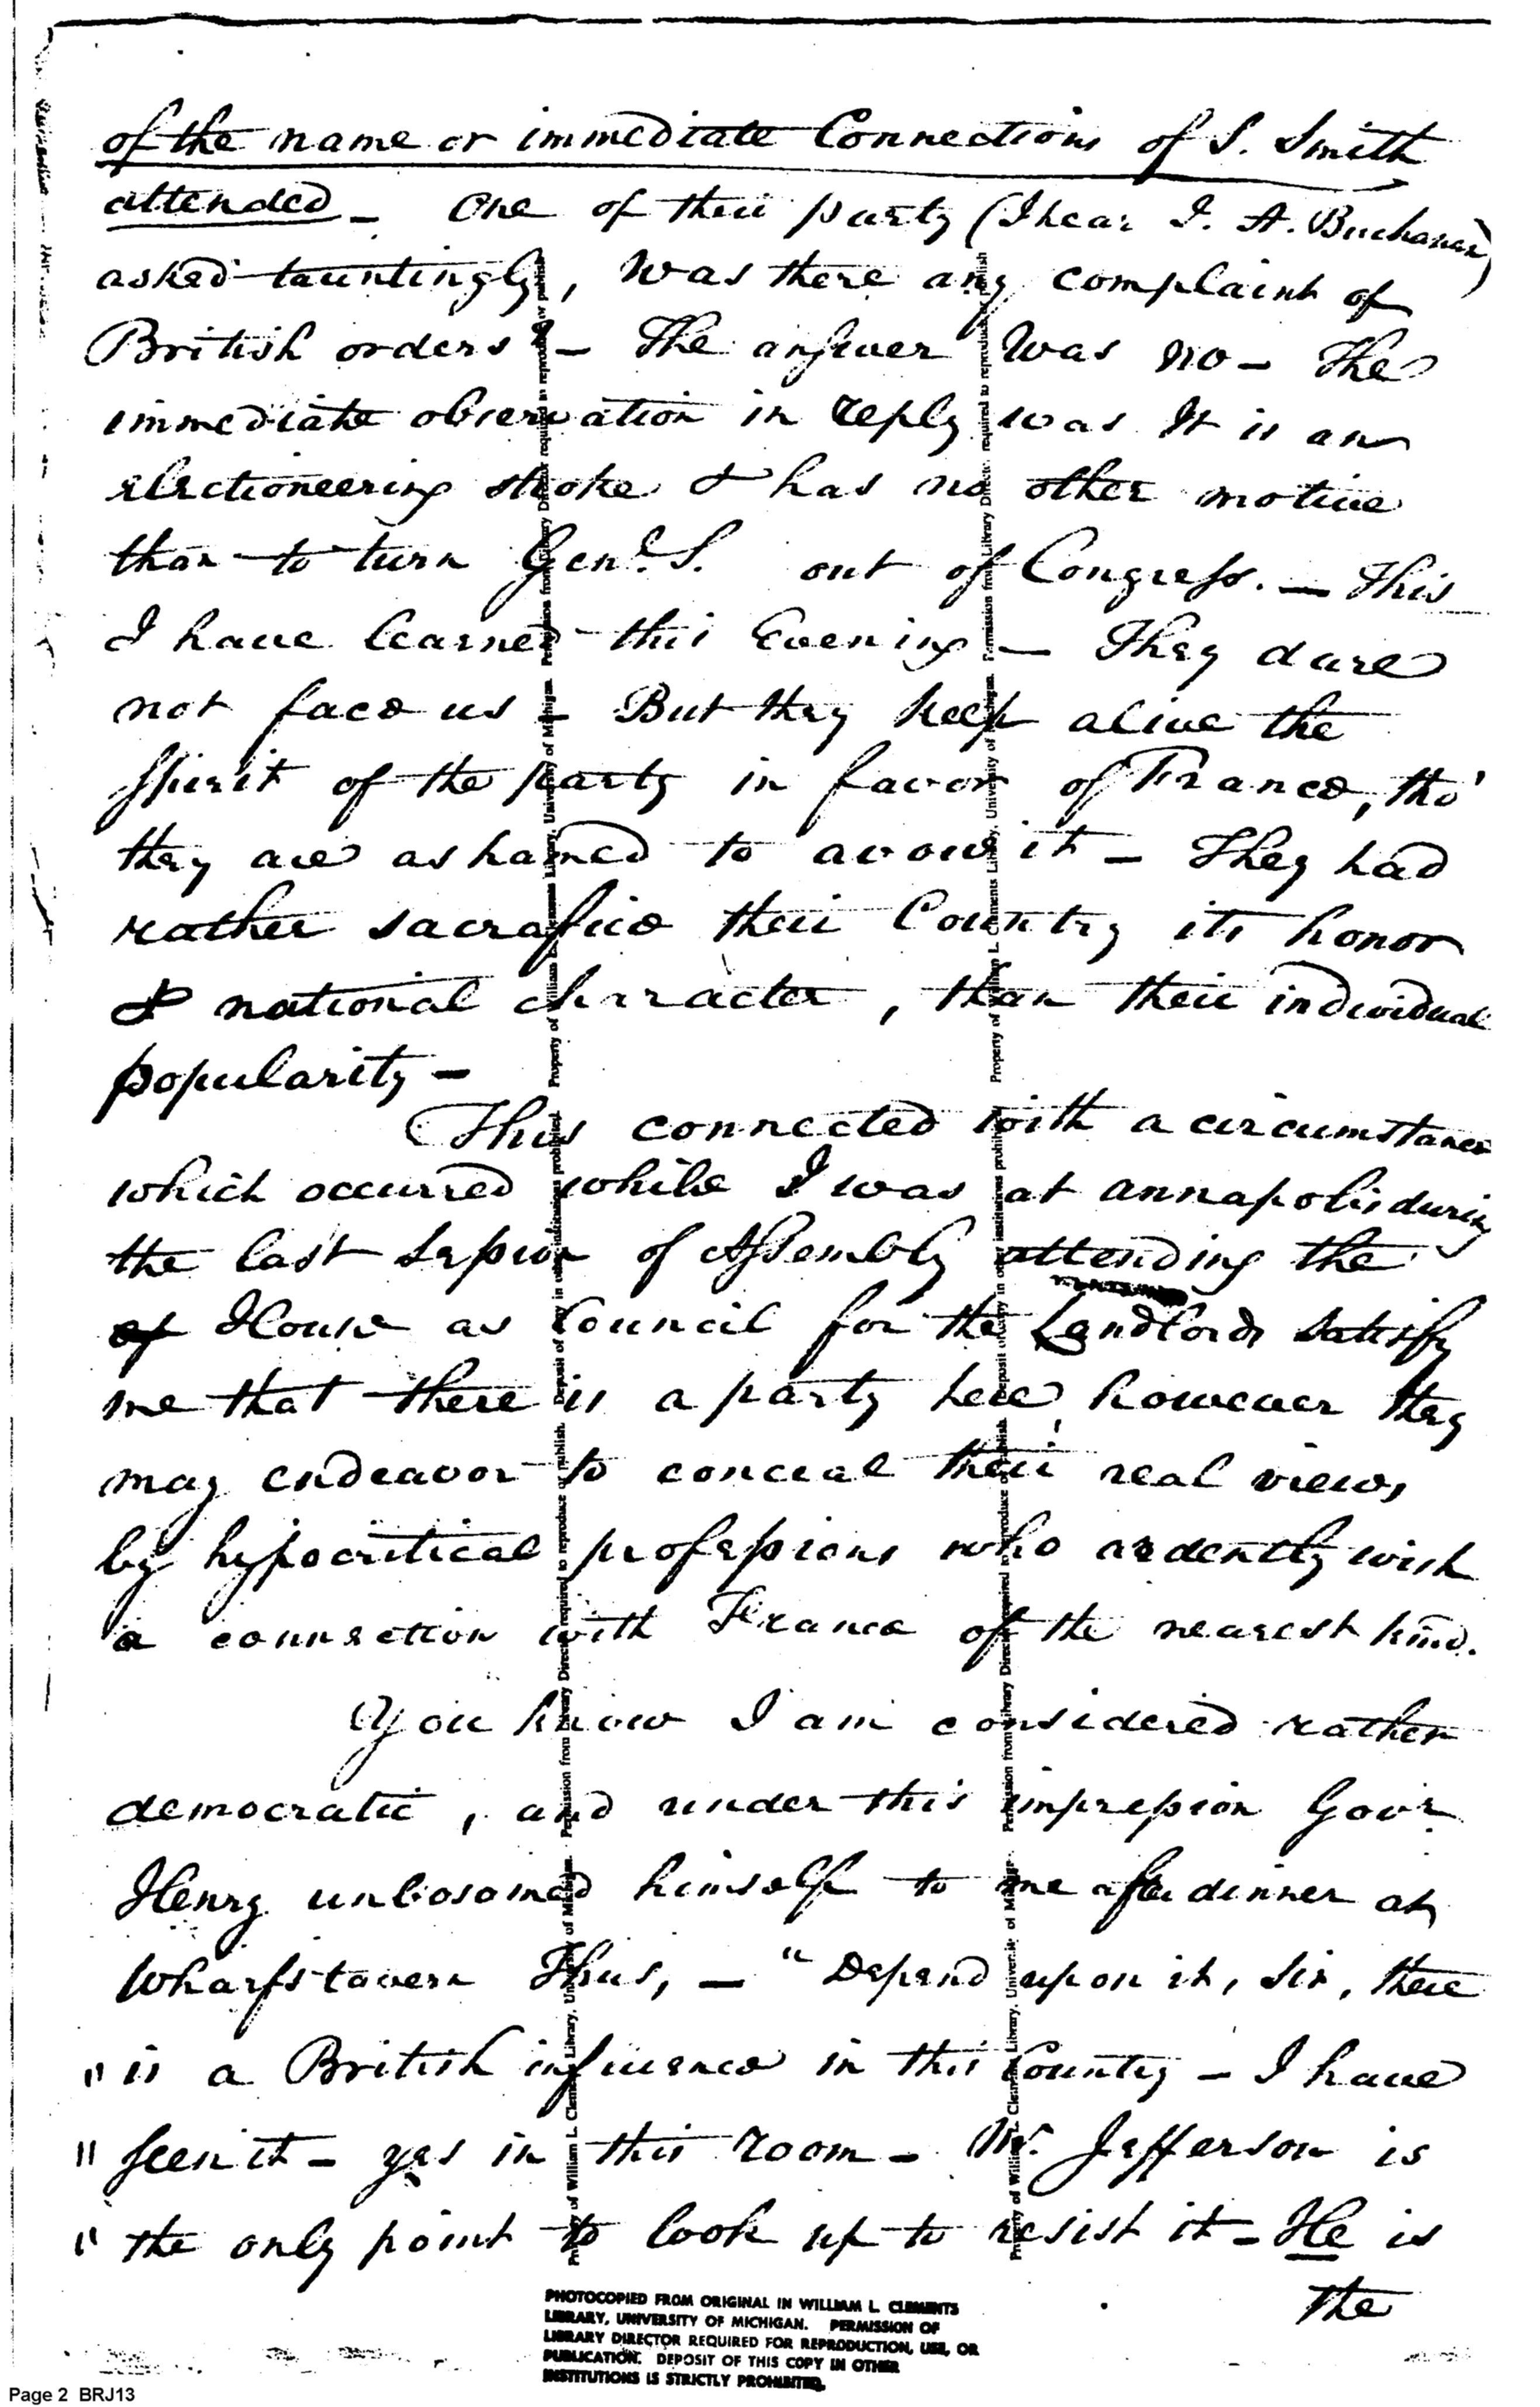 of the name or immediate Connections of S. Smith
attended – One of their party (I hear J. A. Buchanan)
asked tauntingly, Was there any complaint of
British orders? – The answer Was no – The
immediate observation in reply was It is an
electioneering stroke & has no other motive
than to turn Genl. S. out of Congress. — This
I have learned this Evening – They dare
not face us – But they keep alive the
spirit of the party in favor of France, tho'
they are ashamed to avow it – They had
rather sacrafice their Country its honor
& national character, than their individual
popularity –
This connected with a circumstance
which occurred while I was at annapolis during
the last Session of Assembly attending the
of House as Council for the Landlords satisfy
me that there is a party here, however they
may endeavor to conceal their real views,
by hypocritical professions who ardently wish
a connection with France of the nearest kind.
You know I am considered rather
democratic, and under this impression Govr.
Henry unbosomed himself to me after dinner at
Wharfs tavern Thus, — "Depend upon it, Sir, there
" is a British influence in this Country – I have
" seen it – yes in this room – Mr. Jefferson is
" the only point to look up to resist it – He is
the
PHOTOCOPIED FROM ORIGINAL IN WILLIAM L. CLEMENTS
LIBRARY, UNIVERSITY OF MICHIGAN. PERMISSION OF
LIBRARY DIRECTOR REQUIRED FOR REPRODUCTION, USE, OR
PUBLICATION. DEPOSIT OF THIS COPY IN OTHER
INSTITUTIONS IS STRICTLY PROHIBITED.
Page 2 BRJ13
Property of William L. Clements Library, University of Michigan. Permission from Library Director required to reproduce or publish. Deposit of copy in other institutions prohibited.